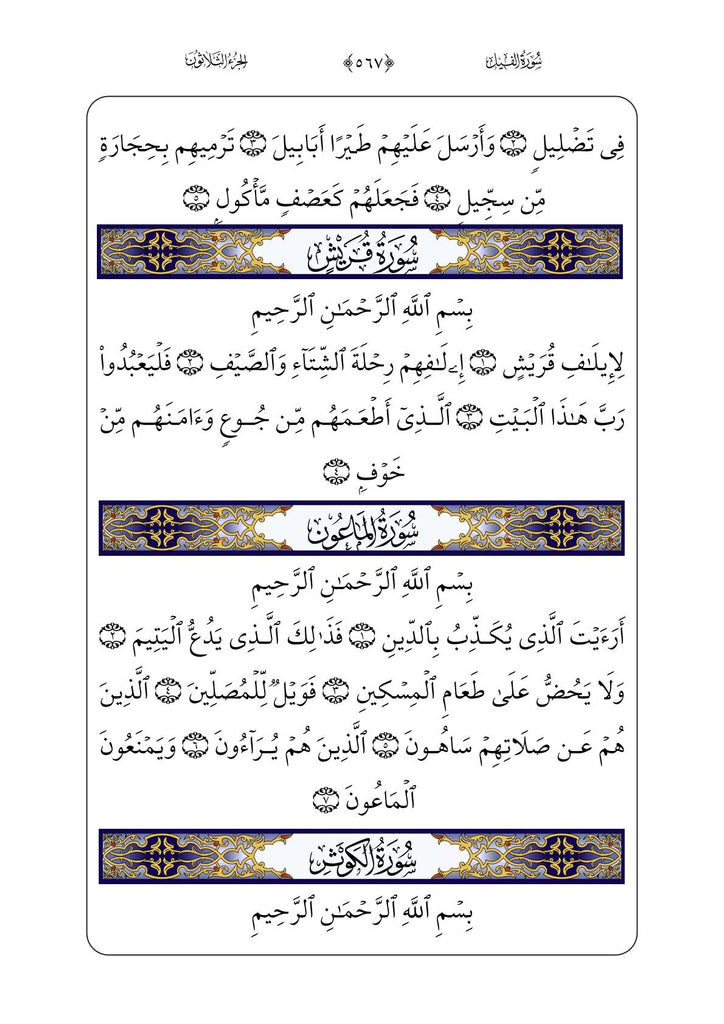 سُورَةُ الفِيلِ ﴿٥٦٧﴾ الجُزْءُ الثَّلَاثُونَ
فِى تَضْلِيلٍ ٢ وَأَرْسَلَ عَلَيْهِمْ طَيْرًا أَبَابِيلَ ٣ تَرْمِيهِم بِحِجَارَةٍ
مِّن سِجِّيلٍ ٤ فَجَعَلَهُمْ كَعَصْفٍ مَّأْكُولٍ ٥
سُورَةُ قُرَيْشٍ
بِسْمِ ٱللَّهِ ٱلرَّحْمَٰنِ ٱلرَّحِيمِ
لِإِيلَٰفِ قُرَيْشٍ ١ إِۦلَٰفِهِمْ رِحْلَةَ ٱلشِّتَآءِ وَٱلصَّيْفِ ٢ فَلْيَعْبُدُوا۟
رَبَّ هَٰذَا ٱلْبَيْتِ ٣ ٱلَّذِىٓ أَطْعَمَهُم مِّن جُوعٍ وَءَامَنَهُم مِّنْ
خَوْفٍ ٤
سُورَةُ المَاعُونِ
بِسْمِ ٱللَّهِ ٱلرَّحْمَٰنِ ٱلرَّحِيمِ
أَرَءَيْتَ ٱلَّذِى يُكَذِّبُ بِٱلدِّينِ ١ فَذَٰلِكَ ٱلَّذِى يَدُعُّ ٱلْيَتِيمَ ٢
وَلَا يَحُضُّ عَلَىٰ طَعَامِ ٱلْمِسْكِينِ ٣ فَوَيْلٌ لِّلْمُصَلِّينَ ٤ ٱلَّذِينَ
هُمْ عَن صَلَاتِهِمْ سَاهُونَ ٥ ٱلَّذِينَ هُمْ يُرَآءُونَ ٦ وَيَمْنَعُونَ
ٱلْمَاعُونَ ٧
سُورَةُ الكَوْثَرِ
بِسْمِ ٱللَّهِ ٱلرَّحْمَٰنِ ٱلرَّحِيمِ